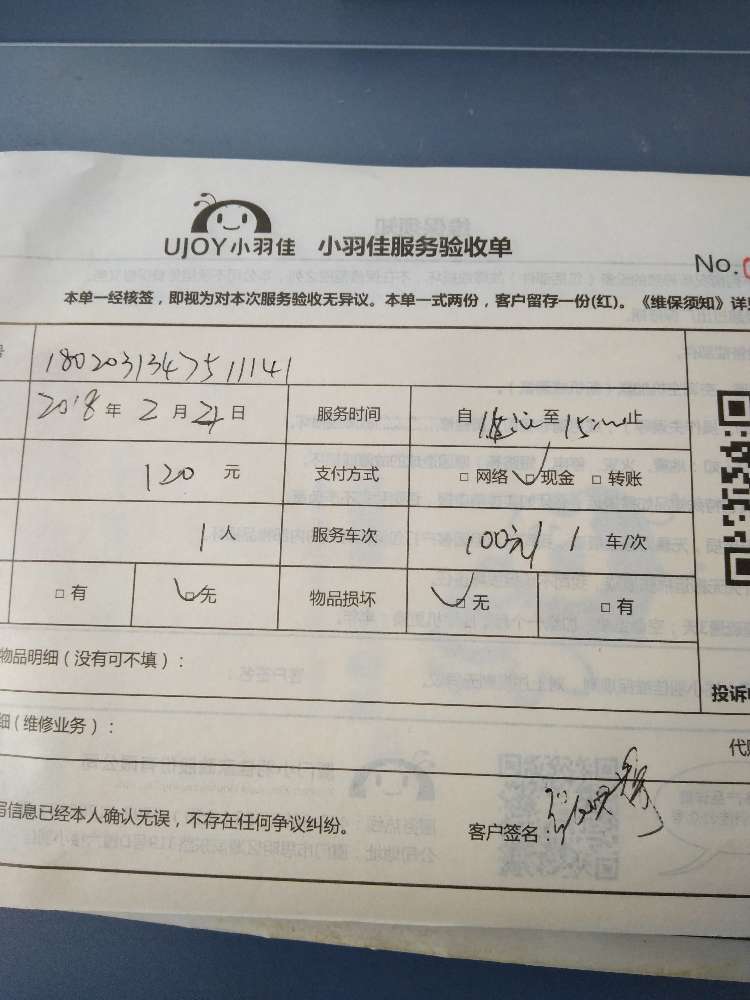 UJOY小羽佳 小羽佳服务验收单
No.
本单一经核签，即视为对本次服务验收无异议。本单一式两份，客户留存一份(红)。《维保须知》详见
号 18020313475111141
2018年2月21日 服务时间 自 至 止
120元 支付方式 □ 网络 □ 现金 □ 转账
1人 服务车次 100元/ 1 车/次
□ 有 □ 无 物品损坏 □ 无 □ 有
物品明细（没有可不填）：
投诉
细（维修业务）：
代
写信息已经本人确认无误，不存在任何争议纠纷。
客户签名：